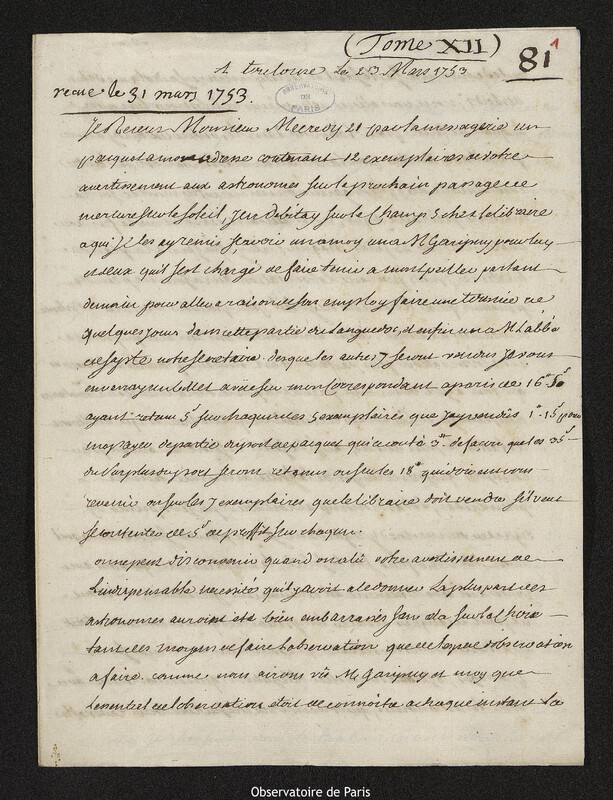 (Tome XII)
81
1
A toulouse le 23 Mars 1753
recue le 31 mars 1753.
OBSERVATOIRE
DE
PARIS
Je Receus Monsieur Mecredy 21 par la messagerie un
paquet a mon adresse contenant 12 exemplaires de votre
avertissement aux astronomes sur le prochain passage de
mercure sur le soleil, J'en debitay sur le Champ 5 chez le libraire
a qui je les ay remis scavoir un a moy un a M Garipuy pour luy
et deux quil s'est chargé de faire tenir a montpellier partant
demain pour aller a raison de son employ faire une tournée de
quelques jours dans cette partie du Languedoc, et enfin un a M l'abbé
de sapte notre secretaire. des que les autres 7 seront vendus Je vous
enverray un billet a vue sur mon Correspondant a paris de 16
ayant retenu 5 sur chaquun des 5 exemplaires que J'ay vendus 1 15 pour
moy payer de partie du port du paquet qui a couté 3 de façon que les 35
du surplus du port seront retenus sur les 18 qui doivent vous
revenir sur les 7 exemplaires que le libraire doit vendre s'il veut
se contenter de 5 de proffit sur chaqun.
on ne peut disconvenir quand on a lû votre avertissement de
L'indispensable necessité qu'il y avoit a le donner La plus part des
astronomes auroint eté bien embarrassés sans cela sur le choix
tant des moyens de faire l'observation que de l'espece d'observation
a faire. comme nous avions vû M. Garipuy et moy que
L'essentiel de l'observation etoit de connoitre a chaque instant La
Observatoire de Paris